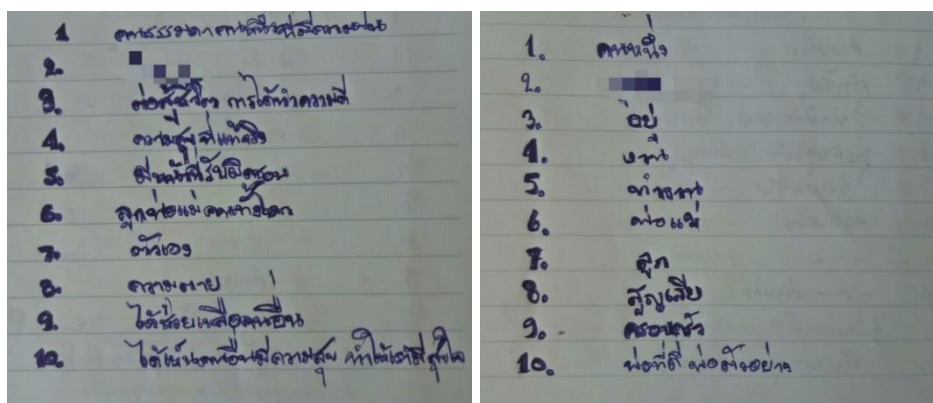 1 คนธรรมดาคนหนึ่งที่มีความฝัน
2.
3. ต่อสู้ชีวิต การได้ทำความดี
4. ความสุขที่แท้จริง
5. มีหน้าที่รับผิดชอบ
6. ลูกพ่อแม่คนทั้งโลก
7. ตัวเอง
8. ความตาย
9. ได้ช่วยเหลือคนอื่น
10. ได้เห็นคนอื่นมีความสุข ทำให้เรามีสุขใจ
1. คนหนึ่ง
2.
3. อยู่
4.
5. ทำงาน
6. พ่อแม่
7. ลูก
8. สูญเสีย
9. ครอบครัว
10. พ่อที่ดี พ่อตัวอย่าง